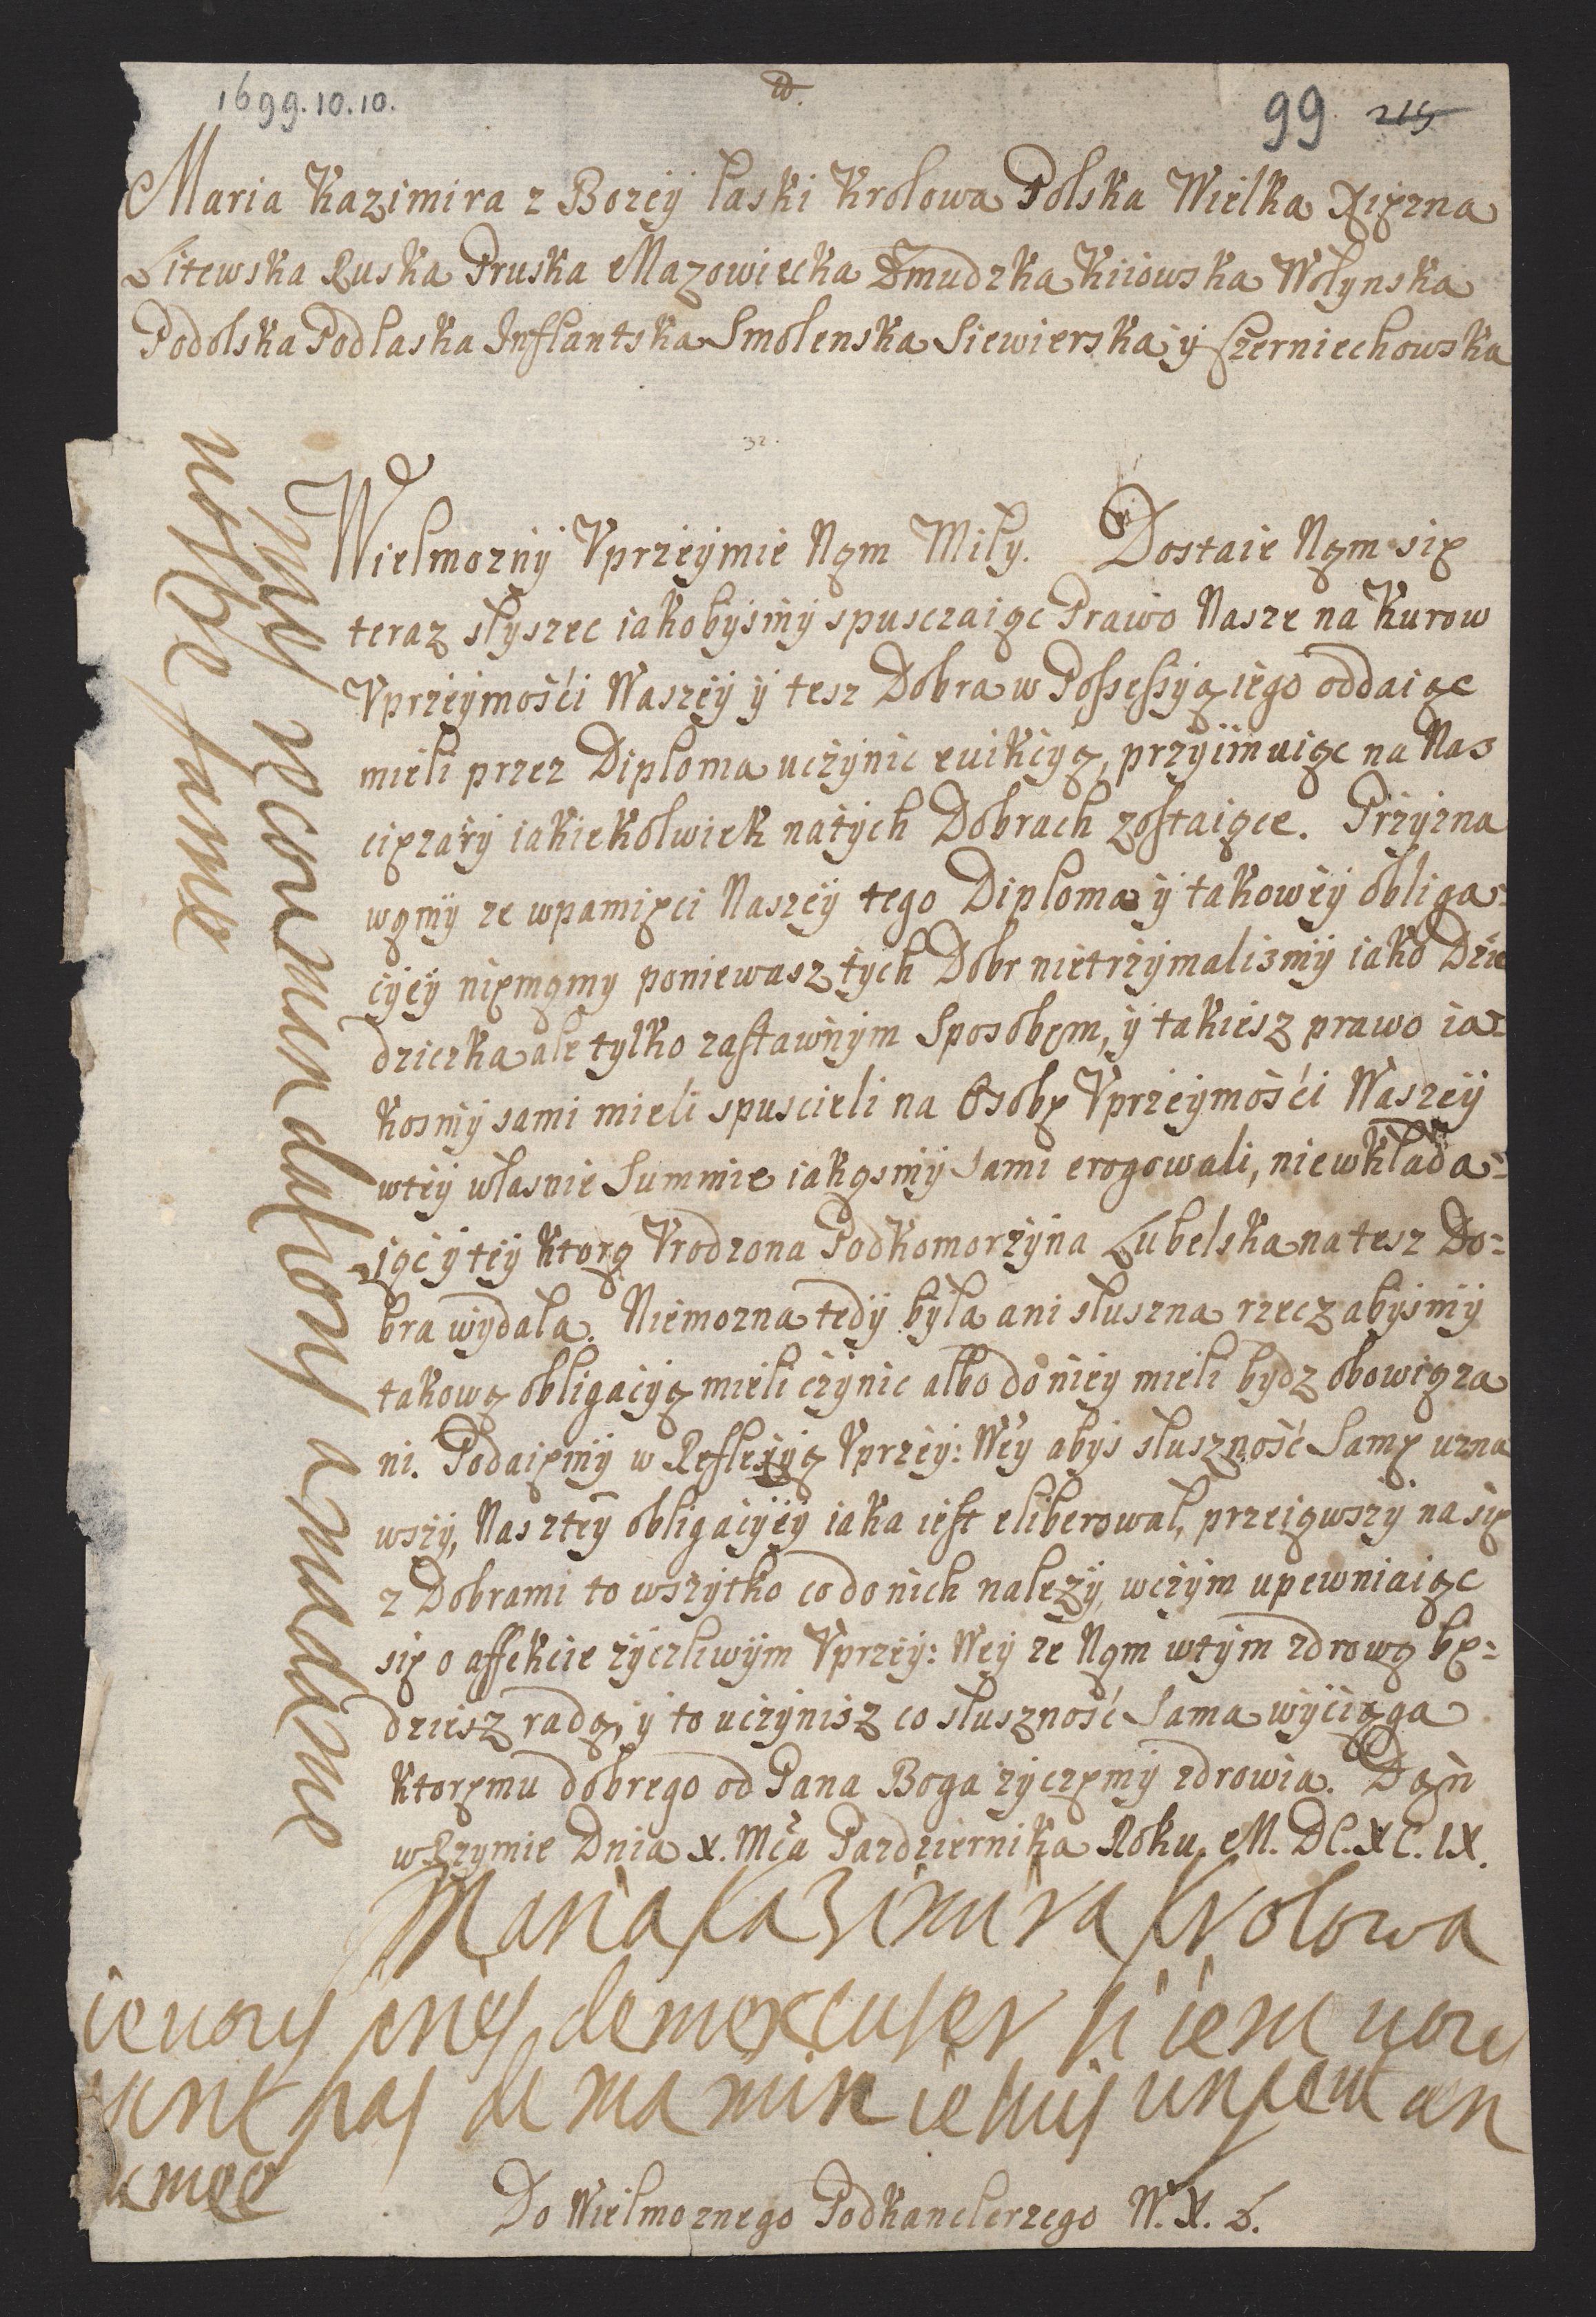 1699.10.10.
99 215
Maria Kazimira z Bozey Łaski Krolowa Polska Wielka Xięzna
Litewska Ruska Pruska Mazowiecka Zmudzka Kiiowska Wołynska
Podolska Podlaska Inflantska Smolenska Siewierska y Czerniechowska
32.
Wielmozny Vprzeymie Nąm Miły. Dostaie Nąm się
teraz słyszec iakobysmy spusczaiąc Prawo Nasze na Kurow
Vprzeymośći Waszey y tesz Dobra w Possessyą iego oddaiąc
mieli przez Diploma uczynic euikcyą, przyimuiąc na Nas
cięzary iakiekolwiek natych Dobrach zostaiące. Przyzna
wąmy ze wpamięci Naszey tego Diploma y takowey obliga=
cyey niemąmy poniewasz tych Dobr nietrzymalismy iako Dzie
dziczka ale tylko zastawnym Sposobem, y takiesz prawo ia=
kosmy sami mieli spuscieli na Osobę Vprzeymośći Waszey
wtey własnie Summie iakąsmy Sami erogowali, niewkłada=
iąc y tey ktorą Vrodzona Podkomorzyna Lubelska na tesz Do=
bra wydała. Niemozna tedy była ani słuszna rzecz abysmy
takową obligacyą mieli czynic albo do niey mieli bydz obowiąza
ni. Podaięmy w Reflexyą Vprzey: Wey abys słuszność Samę uzna
wszy, Nas ztey obligacyey iaka iest eliberował, przeiąwszy na się
z Dobrami to wszytko co do nich nalezy, wczym upewniaiąc
się o affekcie zyczliwym Vprzey: Wey ze Nąm wtym zdrową bę=
dziesz radą, y to uczynisz co słuszność Sama wyciąga
ktoremu dobrego od Pana Boga zyczęmy zdrowia. Dąn
w Rzymie Dnia X. Mca Pazdziernika Roku. M. DC. XC. IX.
Maria Kazimira Krolowa
ie uous pries de mexcuser si ie ne uous
pas de ma min ie suis un peut en
umee
me recommandasion a madame
uostre fame
Do Wielmoznego Podkanclerzego W. X. L.